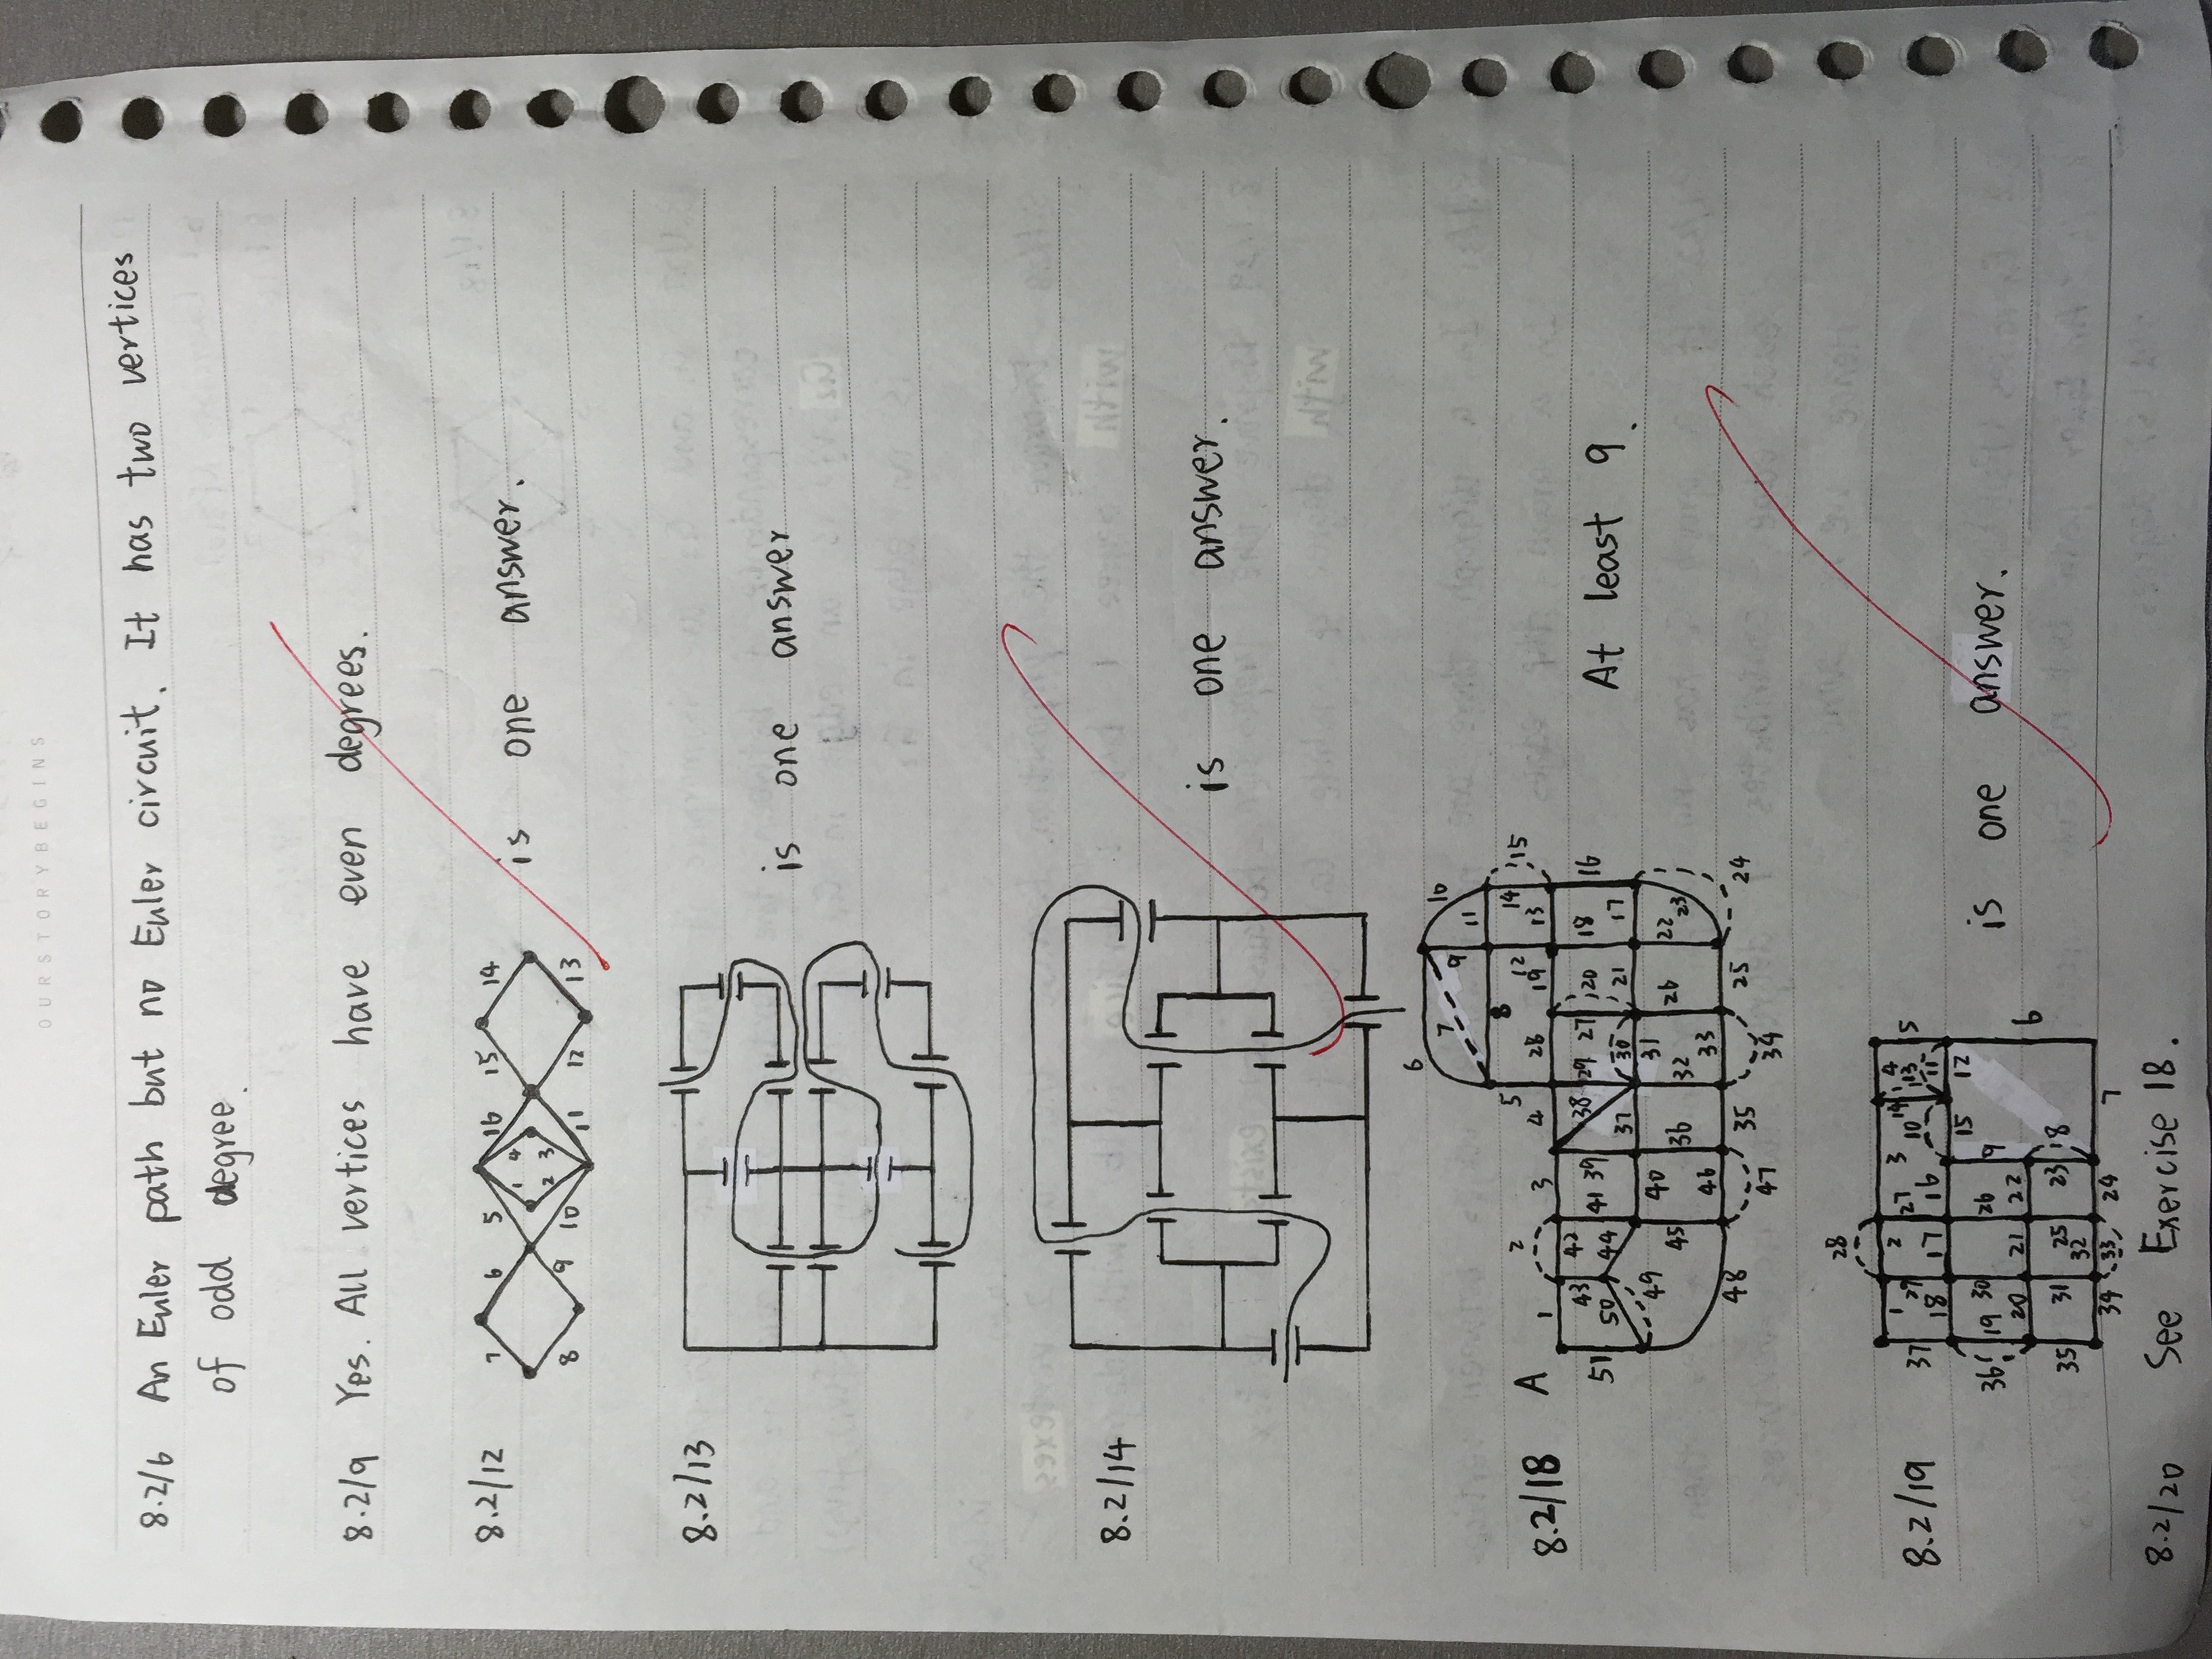 OURSTORYBEGINS
8.2/6 An Euler path but no Euler circuit. It has two vertices
of odd degree.
8.2/9 Yes. All vertices have even degrees.
8.2/12 7 6 5 16 15 14
1 4
2 3
8 9 10 11 12 13
is one answer.
8.2/13 is one answer
8.2/14 is one answer.
6
7 9 10
11
5 8 12 14 15
8.2/18 A 1 2 3 4 28 19 13
51 43 42 41 39 38 29 27 20 18 16
50 44 37 30 21 17
49 40 31
45 36 32 26 22 23
46 33
48 47 35 34 25 24
At least 9.
28
8.2/19 1 2 3 14 4
37 29 27 10 13 5
18 17 16 11
15 12
36 19 30 26 9
20 21 22 6
35 31 25 23 8
32
34 33 24 7
is one answer.
8.2/20 See Exercise 18.